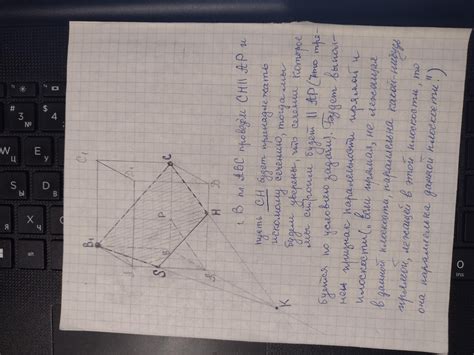 C₁
B₁
C
D
P
H
S
A
K
1. В пл ABC проведём CH || AP и
пусть CH будет принадлежать
искомому сечению, тогда мы
будем уверены, что сечение которое
мы строим будет || AP (это тре-
буется по условию задачи). Будет выпол-
нен признак параллельности прямой и
плоскости („ если прямая, не лежащая
в данной плоскости, параллельна какой-нибудь
прямой, лежащей в этой плоскости, то
она параллельна данной плоскости!")